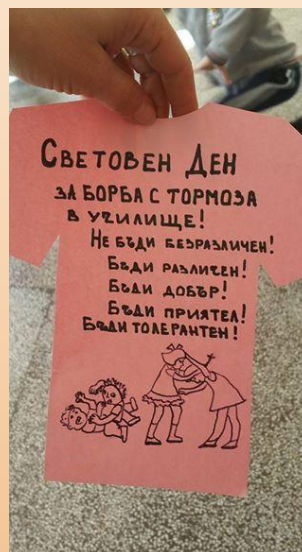 СВЕТОВЕН ДЕН
ЗА БОРБА С ТОРМОЗА
В УЧИЛИЩЕ!
НЕ БЪДИ БЕЗРАЗЛИЧЕН!
БЪДИ РАЗЛИЧЕН!
БЪДИ ДОБЪР!
БЪДИ ПРИЯТЕЛ!
БЪДИ ТОЛЕРАНТЕН!